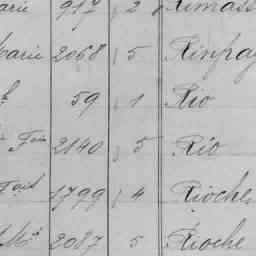 arie 917 2 Rimass
Marie 2068 5 Rinpa
59 1 Rio
Fois 2140 5 Rio
1799 4 Rioche
Mª 2087 5 Rioche